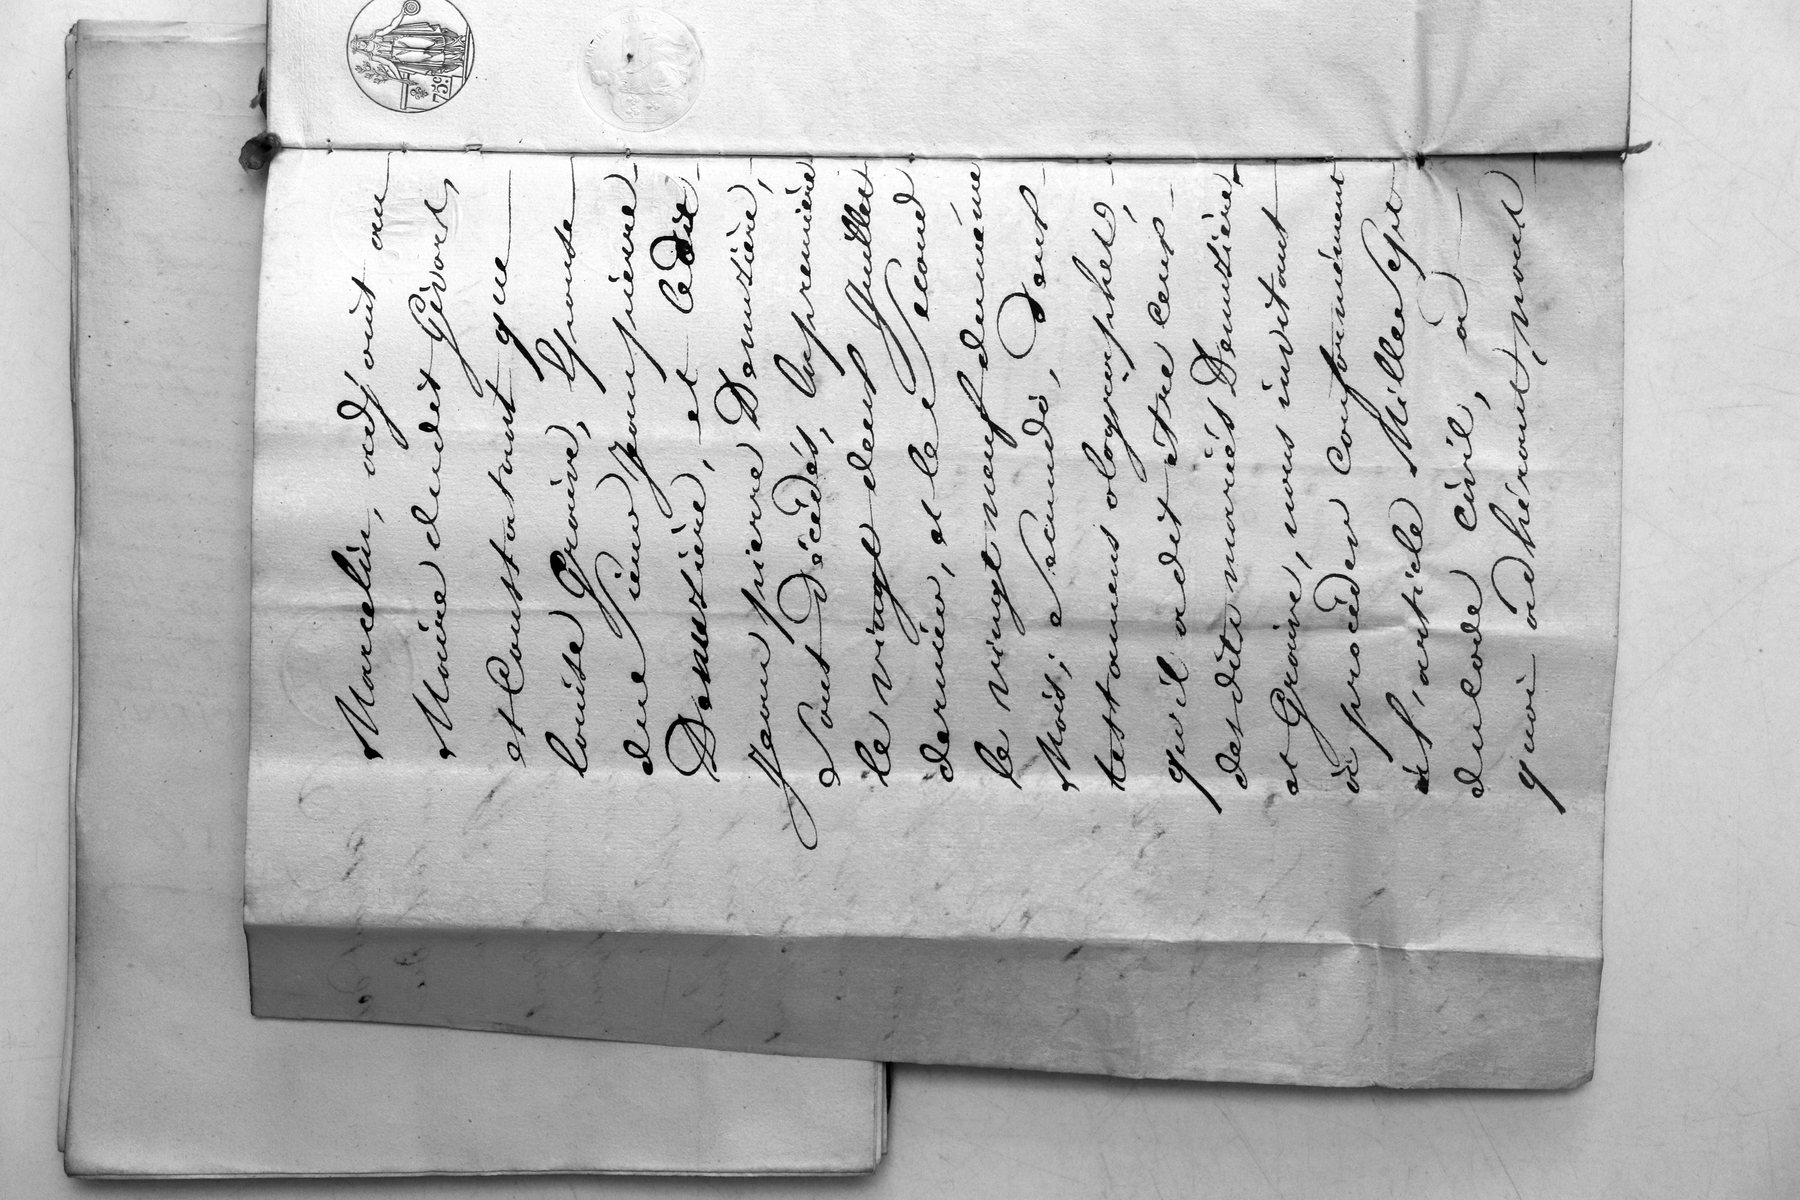 75c.
Marcelin, adjoint au
Maire dudet Givors,
et Constatant que
louise Graire, Épouse
due Sieur jeanpierre
Demuzière, et ledit
jean pierre Demuzière,
sont Décédés, lapremière
le vingt deux Juillet
dernier, et le Second
le vingt neuf dumême
Mois; Secundo, deux
testamens olographes,
qu'il adit être ceux
desdits mariés Demuzière
et Graire, nous invitant
à procéder conformément
à l'article Mille Sept
ducode civil, à
quoi adhérant, nous